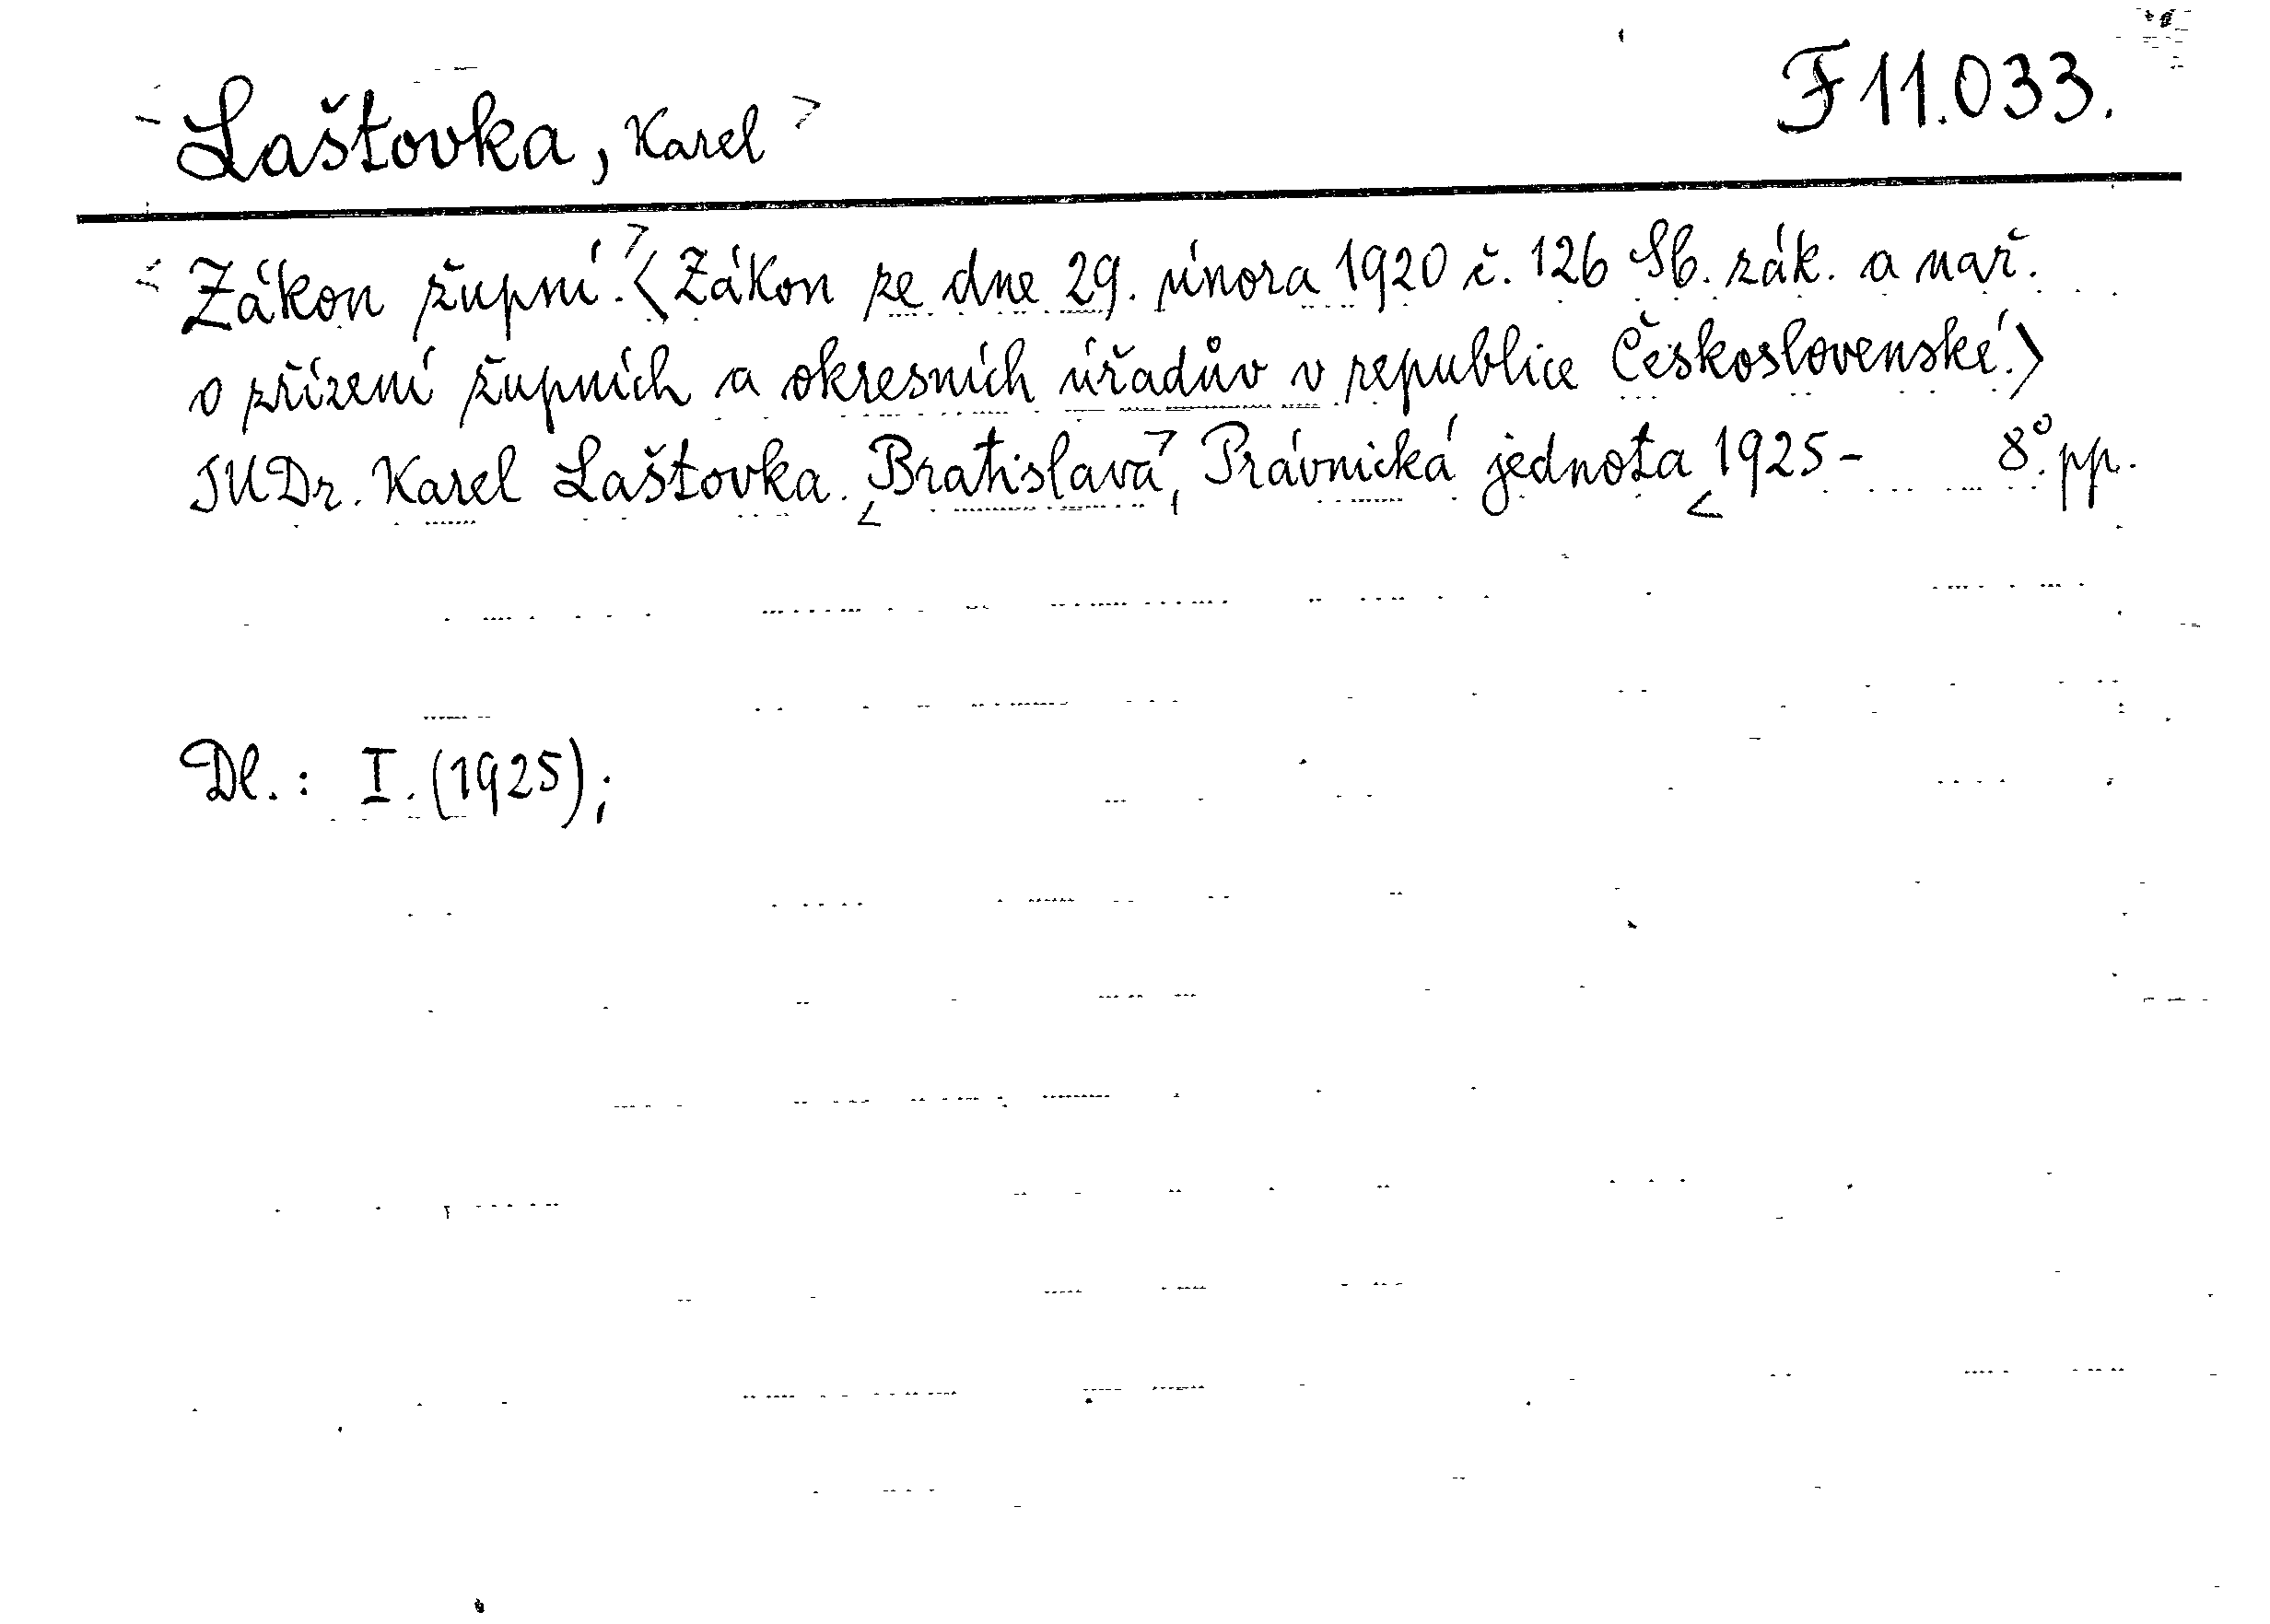 Laštovka, Karel
F 11.033.
Zákon župní. (Zákon ze dne 29. února 1920 č. 126 Sb. zák. a nař.
o zřízení župních a okresních úřadův v republice Československé.)
JUDr. Karel Laštovka. Bratislava, Právnická jednota 1925- 8°. pp.
Dl.: I. (1925);